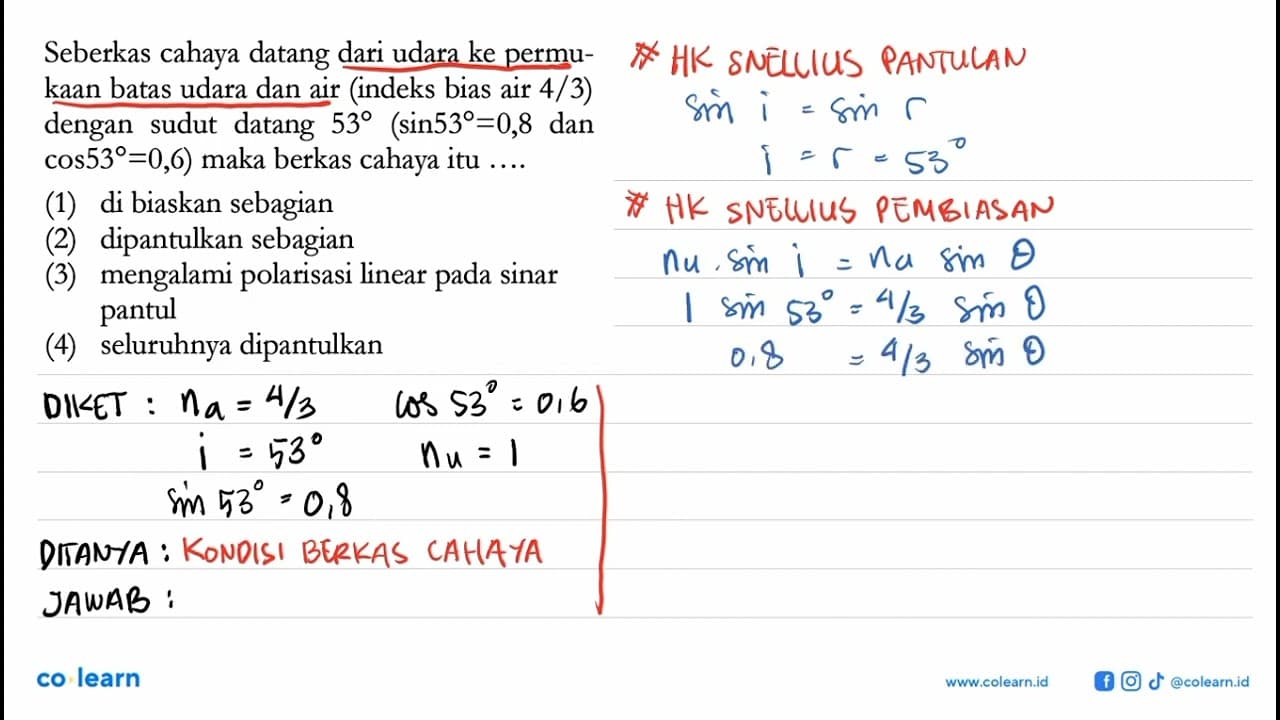 Seberkas cahaya datang dari udara ke permu-
kaan batas udara dan air (indeks bias air 4/3)
dengan sudut datang 53° (sin53°=0,8 dan
cos53°=0,6) maka berkas cahaya itu ....
(1) di biaskan sebagian
(2) dipantulkan sebagian
(3) mengalami polarisasi linear pada sinar
pantul
(4) seluruhnya dipantulkan
DIKET : na = 4/3 cos 53° = 0,6
i = 53° nu = 1
sin 53° = 0,8
DITANYA : KONDISI BERKAS CAHAYA
JAWAB :
# HK SNELLIUS PANTULAN
sin i = sin r
i = r = 53°
# HK SNELLIUS PEMBIASAN
nu . sin i = na sin θ
1 sin 53° = 4/3 sin θ
0,8 = 4/3 sin θ
co learn
www.colearn.id
@colearn.id